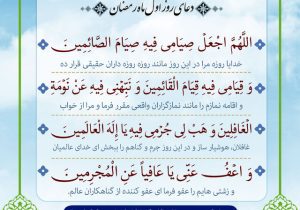 دعای روز اول ماه رمضان
اللَّهُمَّ اجْعَلْ صِيَامِي فِيهِ صِيَامَ الصَّائِمِينَ
خدایا روزه مرا در این روز مانند روزه روزه داران حقیقی قرار ده
وَ قِيَامِي فِيهِ قِيَامَ الْقَائِمِينَ وَ نَبِّهْنِي فِيهِ عَنْ نَوْمَةِ
و اقامه نمازم را مانند نمازگزاران واقعی مقرر فرما و مرا از خواب
الْغَافِلِينَ وَ هَبْ لِي جُرْمِي فِيهِ يَا إِلَهَ الْعَالَمِينَ
غافلان، هوشیار ساز و در این روز جرم و گناهم را ببخش ای خدای عالمیان
وَ اعْفُ عَنِّي يَا عَافِياً عَنِ الْمُجْرِمِينَ
و زشتی هایم را عفو فرما ای عفو کننده از گناهکاران عالم.